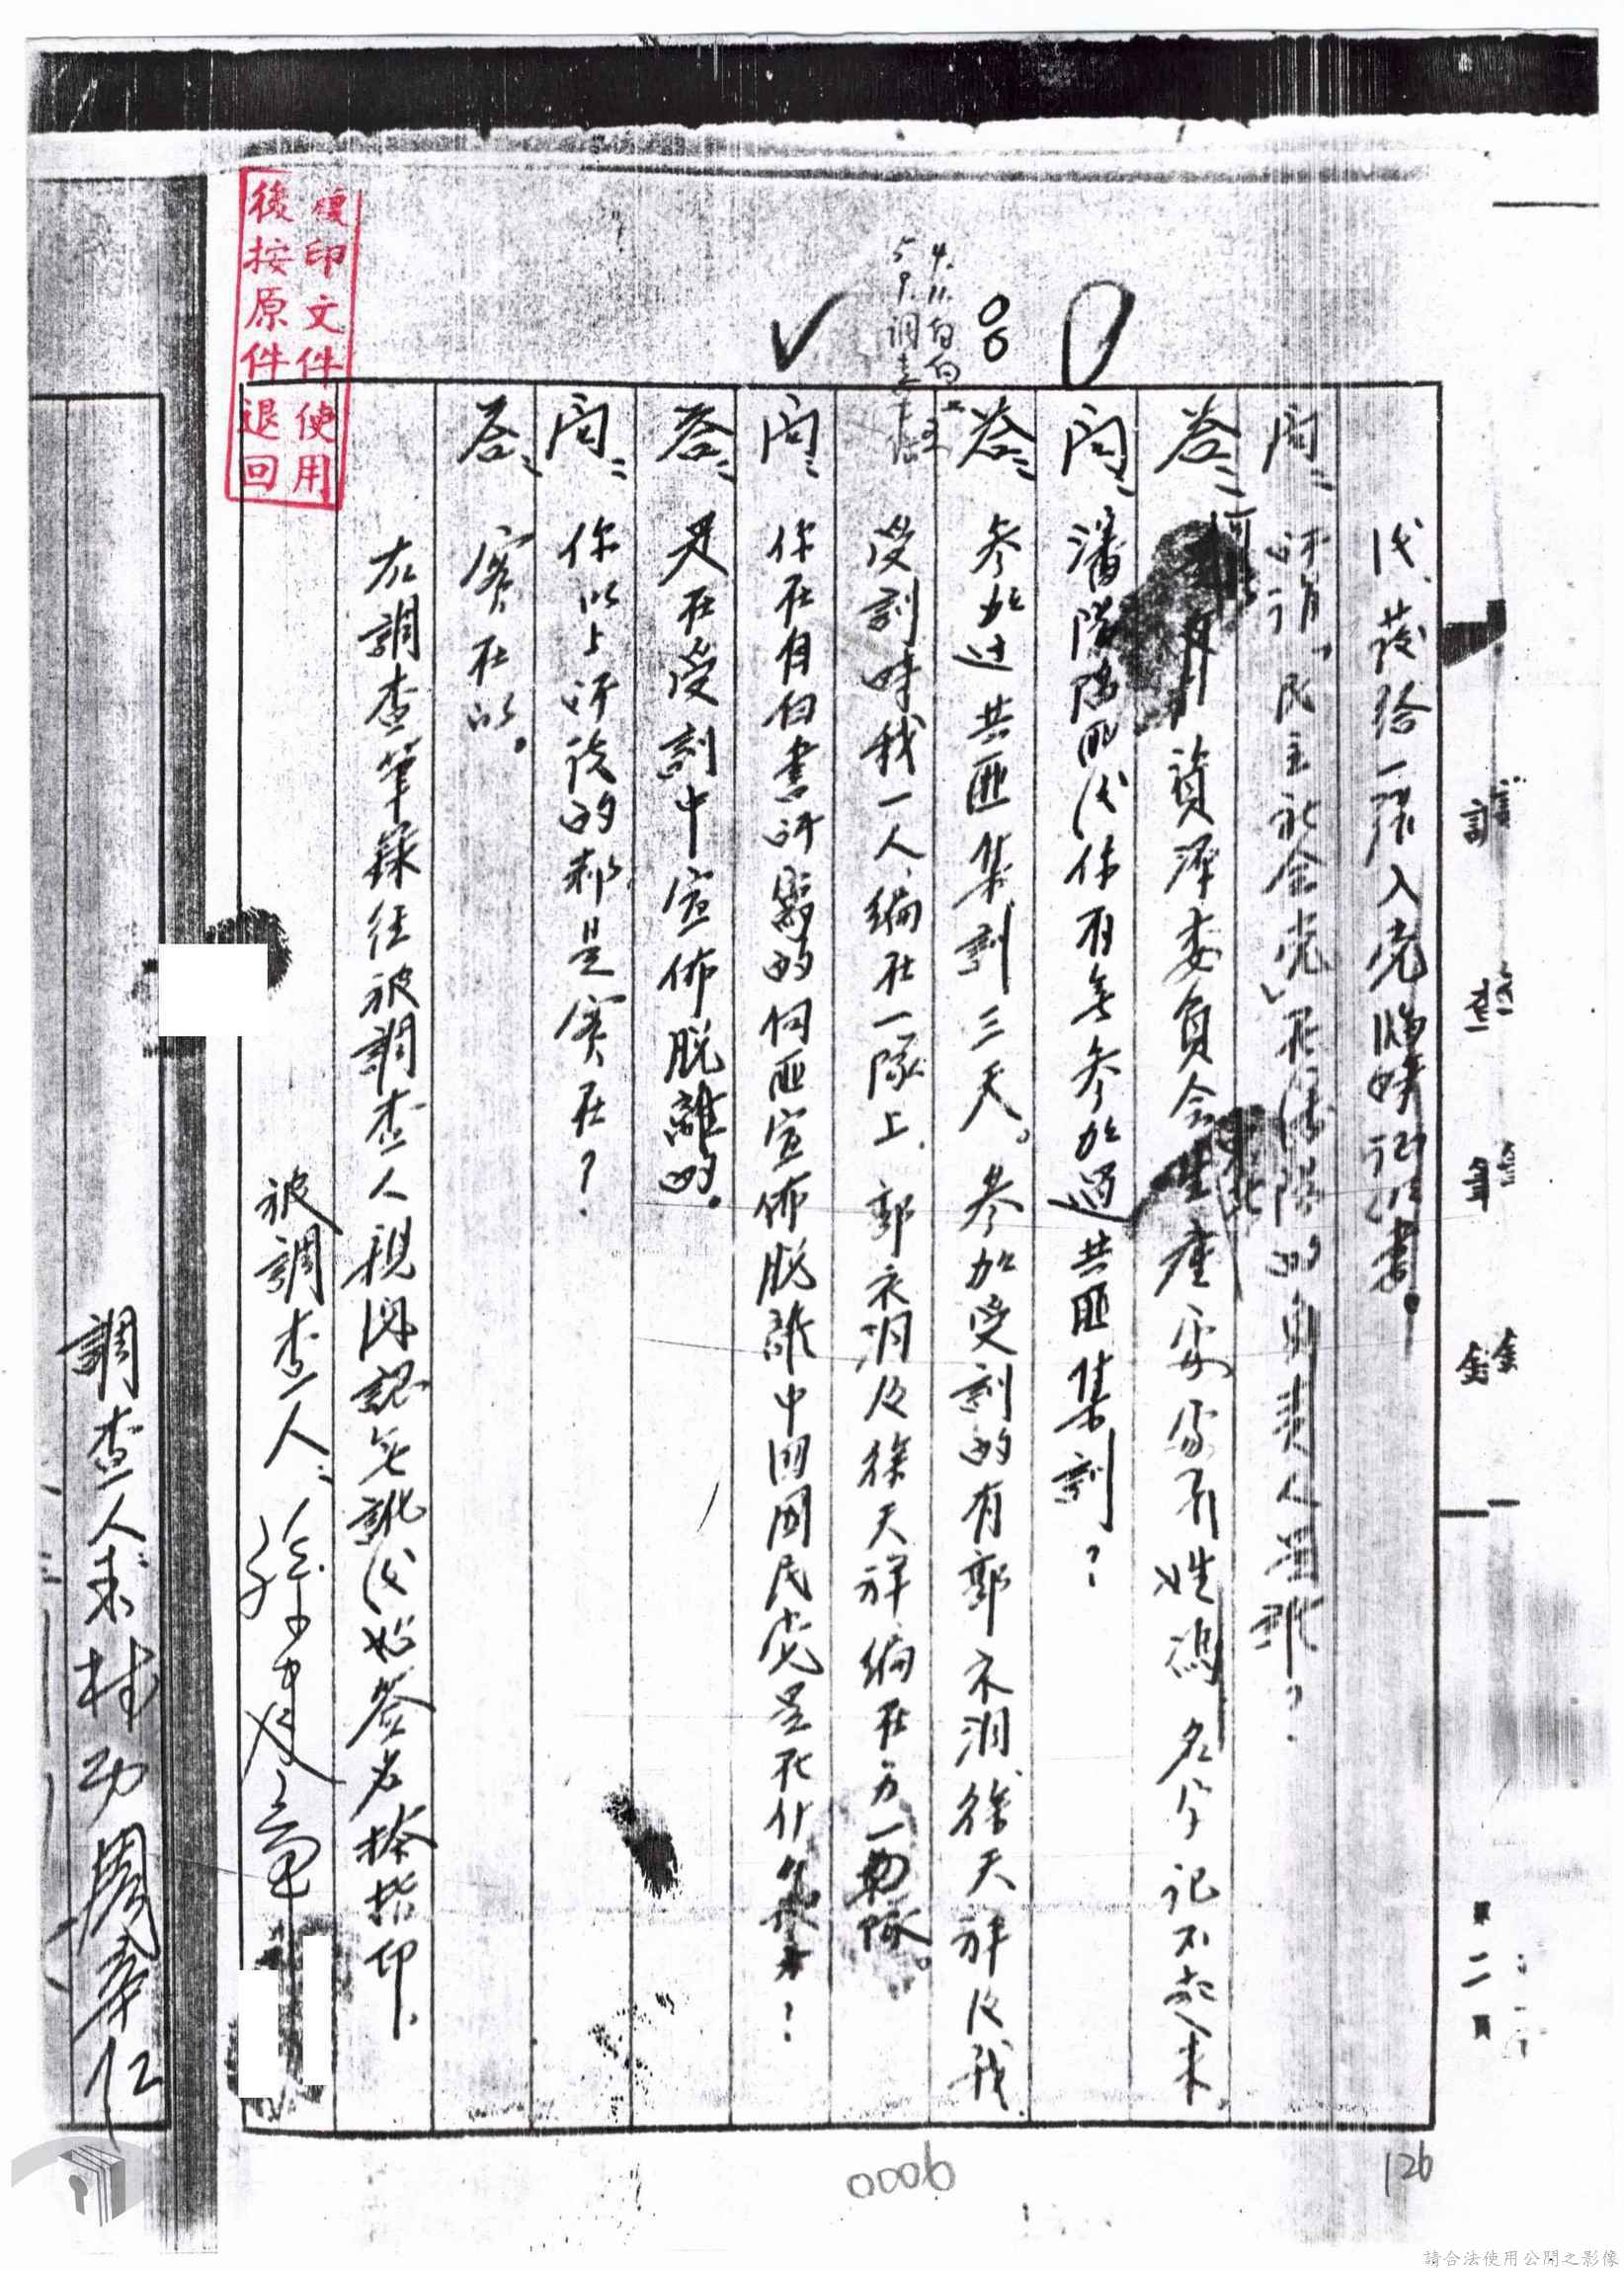 調查筆錄
第二頁
後、發給一張入党臨時証明書。
問：所謂「民主社会党」在瀋陽的負責人是誰？
答：資源委員会生產委員予姓馮名字記不起來。
問：瀋陽陷匪後你有無參加過共匪集訓？
答：參加过共匪集訓三天。參加受訓的有郭衣洞、徐天祥及我
受訓時我一人編在一隊上、郭衣洞及徐天祥編在另一隊。
問：你在自白書所寫的向匪宣佈脫離中國國民党是在什麼？
答：是在受訓中宣佈脫離的。
問：你以上所說的都是實在？
答：實在的。
右調查筆錄任被調查人親閱認無訛後始簽名捺指印.
被調查人：孫建章
調查人
復印文件使用
後按原件退回
4.11.自白
5.9.調查
0006
126
請合法使用公開之影像